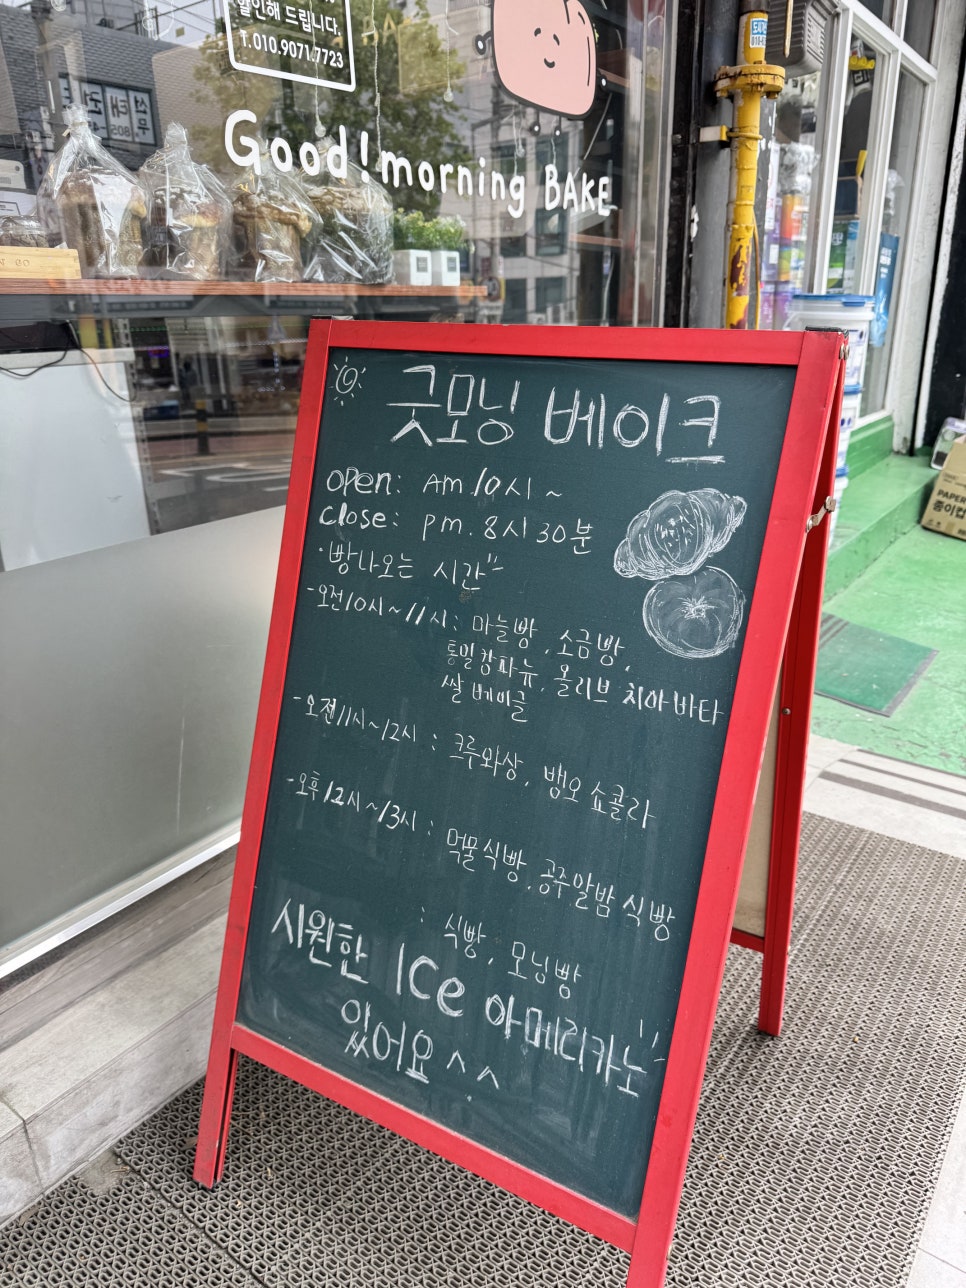 할인해 드립니다.
T.010.9071.7723
Good!morning BAKE
굿모닝 베이크
open: am.10시~
close: pm. 8시 30분
·빵나오는 시간
-오전10시~11시: 마늘빵, 소금빵,
통밀깜파뉴, 올리브 치아바타
쌀베이글
-오전11시~12시: 크루와상, 뺑오쇼콜라
-오후12시~13시: 먹물식빵, 공주알밤 식빵
: 식빵, 모닝빵
시원한 ICe 아메리카노
있어요 ^^
PAPER
종이컵